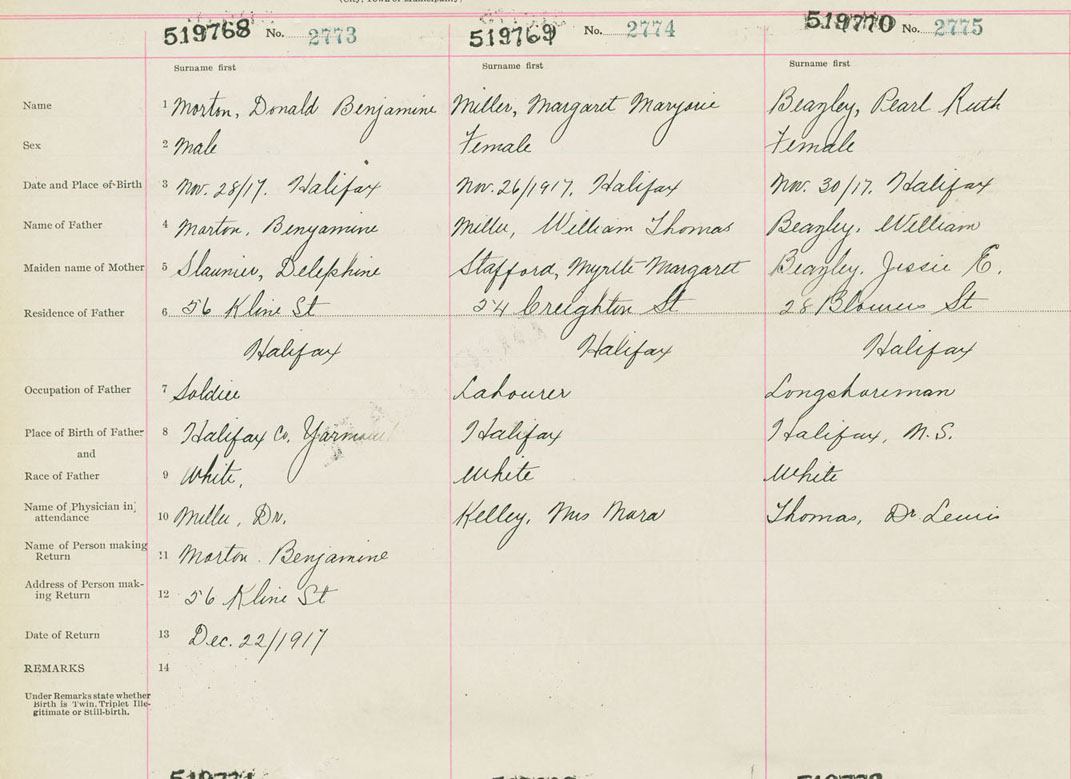 (City, Town or Municipality)
519768 No. 2773 519769 No. 2774 519770 No. 2775
Surname first Surname first Surname first
Name 1 Morton, Donald Benjamine Miller, Margaret Marjorie Beazley, Pearl Ruth
Sex 2 Male Female Female
Date and Place of Birth 3 Nov. 28/17. Halifax Nov. 26/1917. Halifax Nov. 30/17. Halifax
Name of Father 4 Morton, Benjamine Miller, William Thomas Beazley, William
Maiden name of Mother 5 Slaunier, Delephine Stafford, Myrtle Margaret Beazley, Jessie E.
Residence of Father 6 56 Kline St 54 Creighton St 28 Blowers St
Halifax Halifax Halifax
Occupation of Father 7 Soldier Labourer Longshoreman
Place of Birth of Father 8 Halifax Co. Halifax Halifax, N.S.
and
Race of Father 9 White, White White
Name of Physician in attendance 10 Miller, Dr. Kelley, Mrs Mara Thomas, Dr Lewis
Name of Person making Return 11 Morton. Benjamine
Address of Person mak-
ing Return 12 56 Kline St
Date of Return 13 Dec. 22/1917
REMARKS 14
Under Remarks state whether
Birth is Twin, Triplet Ille-
gitimate or Still-birth.